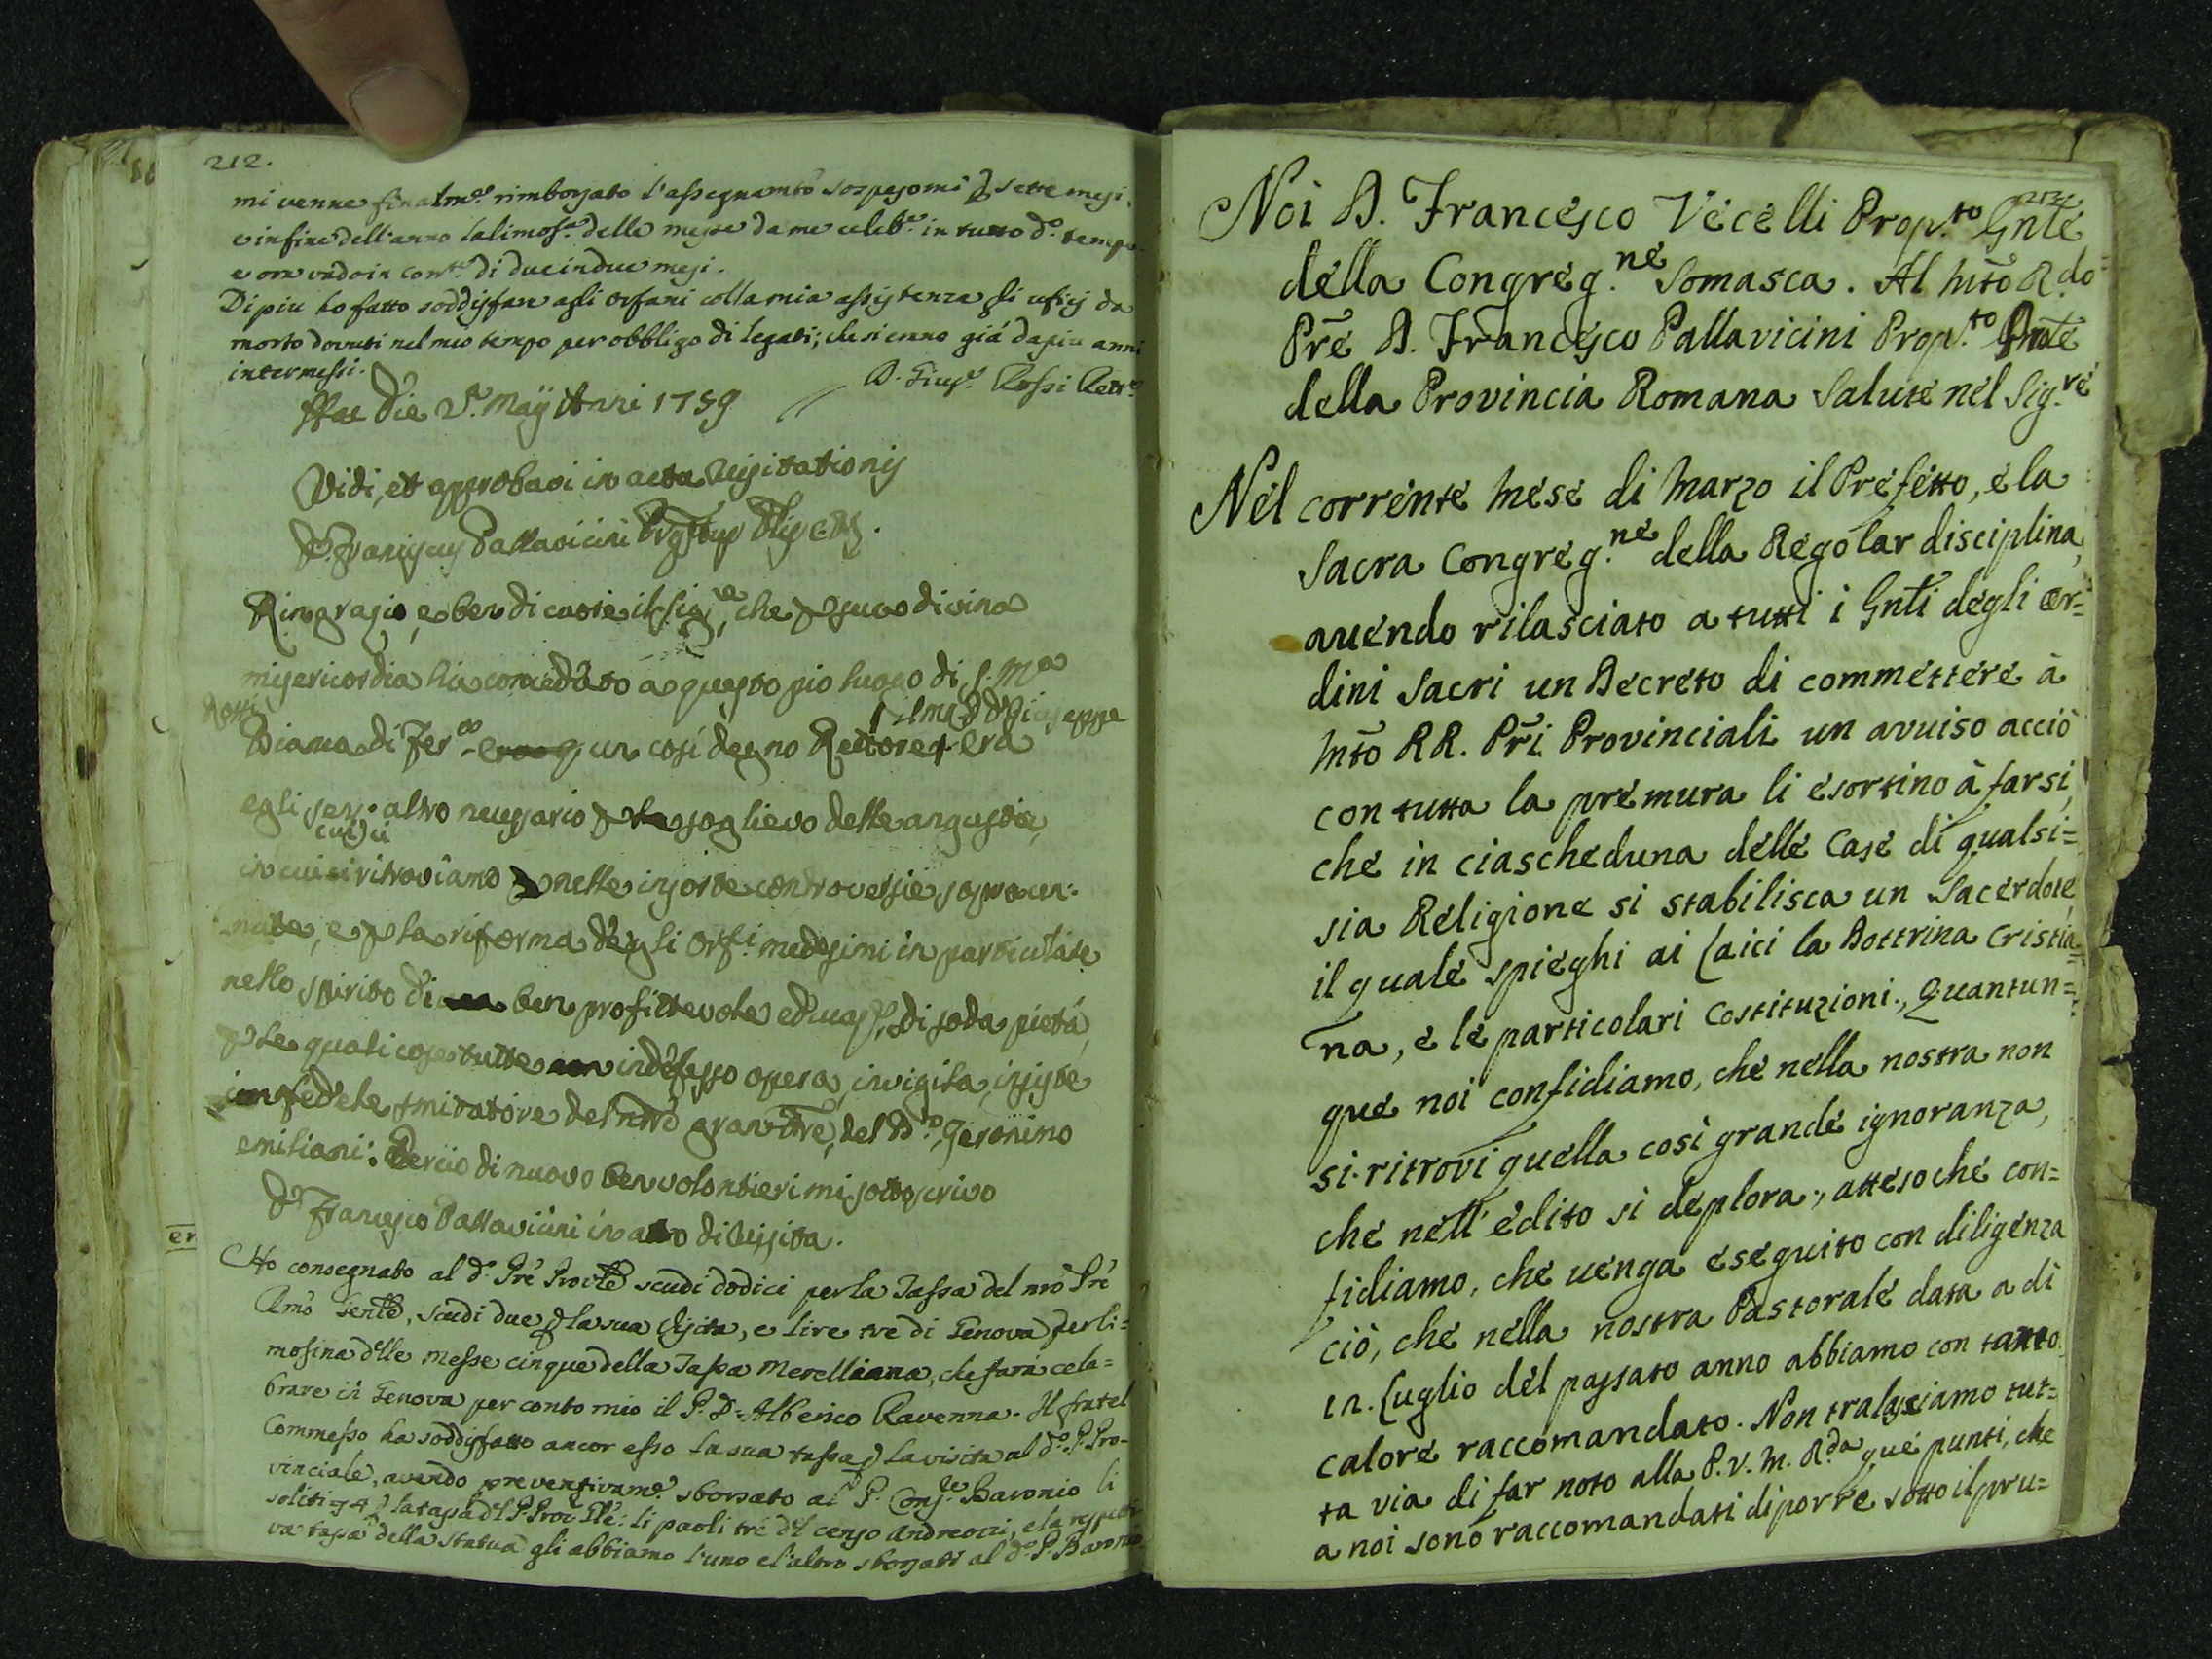 212.
mi venne finalm.e rimborsato l'assegnamto sospesomi sette mesi,
e infine dell'anno la limos.a delle messe da me celeb.e in tutto d.o tempo
e ora vado in di due in due mesi.
Di piu ho fatto soddisfare agli orfani colla mia assistenza gli ufici da
morto dovuti nel mio tempo per obbligo di legati; che si erano già da piu anni
intermessi.
D. Gius.e Rossi Rett.e
Hac die 2.a Maij Anni 1759
Vidi, et approbavi in actu visitationis
D. Franciscus Pallavicini
Ringrazio, e ben di cuore il Sig.re, che sua divina
misericordia hà conceduto a questo pio luogo di S. M.a
Rossi
il D. Giuseppe
Bianca di Fer.o un così degno Rettore era
egli altro necessario soglievo delle angustie,
in cui si ritroviamo nelle insorte controversie sopracen-
nate, e la riforma degli Orf.i medesimi in particulare
nello spirito di ben profittevole di soda pietà,
le quali cose tutte indefesso opera, invigila, insiste
fedele imitatore del nro gran Pre, del B.o Geronimo
emiliani: Perciò di nuovo ben volontieri mi sottoscrivo
D. Francesco Pallavicini in atto di visita.
Ho consegnato al d.o Pre Proīle scudi dodici per la Tassa del nrō Prē
Rm̄o Genle, scudi due la sua visita, e lire tre di Genova per li=
mosina dlle messe cinque della Tassa Merelliana, che farà cele=
brare in Genova per conto mio il P. D. Alberico Ravenna. Il fratel
Commesso ha soddisfatto ancor esso la sua tassa la visita al d.o P. Pro-
vinciale, avendo preventivam.e sborsato al P. Baronio li
soliti la tassa dl P. Proīle: li paoli trè dl censo Andreozzi, e la
va tassa della Statua gli abbiamo l'uno e l'altro sborsati al d.o P. Baronio
Noi D. Francesco Vecelli Prop.to Gnle
della Congreg.ne Somasca. Al Mto R.do
Prē D. Francesco Pallavicini Prop.to
della Provincia Romana Salute nel Sig.re
Nel corrente Mese di Marzo il Prefetto, e la
Sacra Congreg.ne della Regolar disciplina,
avendo rilasciato a tutti i Gnli degli or=
dini Sacri un Decreto di commettere à
Mto RR. Pri Provinciali un avviso acciò
con tutta la premura li esortino à farsi,
che in ciascheduna delle Case di qualsi=
sia Religione si stabilisca un Sacerdote,
il quale spieghi ai Laici la Dottrina Cristia=
na, e le particolari Costituzioni, Quantun=
que noi confidiamo, che nella nostra non
si ritrovi quella così grande ignoranza,
che nell'edito si deplora, atteso che con=
fidiamo, che venga eseguito con diligenza
ciò, che nella nostra Pastorale data a dì
12. Luglio del passato anno abbiamo con tanto
calore raccomandato. Non tralasciamo tut=
ta via di far noto alla P. V. M. R.da que' punti, che
a noi sono raccomandati di porre sotto il pru=